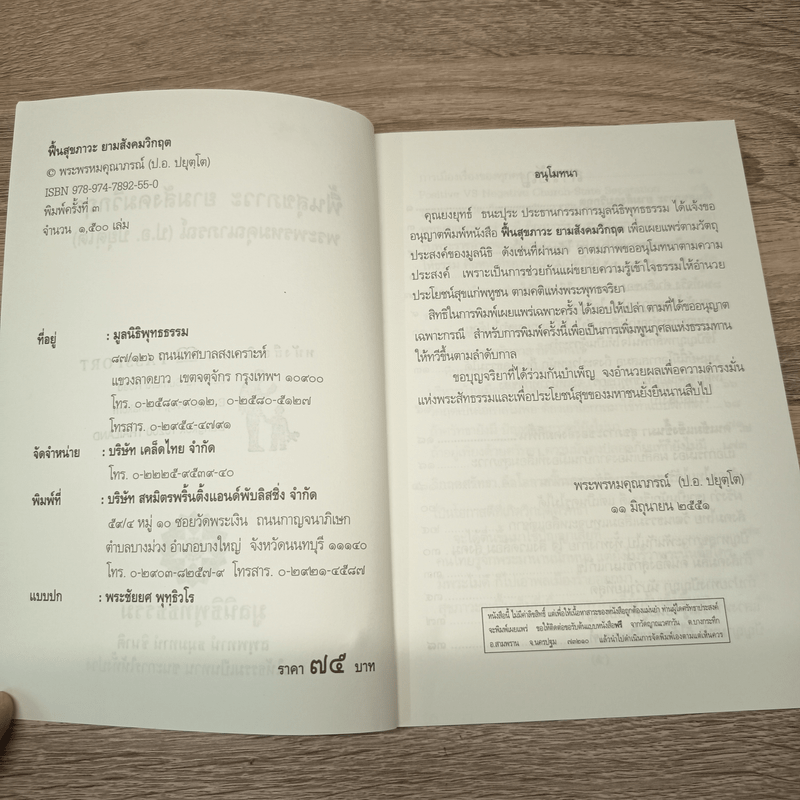 ฟื้นสุขภาวะ ยามสังคมวิกฤต
© พระพรหมคุณาภรณ์ (ป.อ. ปยุตฺโต)
ISBN 978-974-7892-55-0
พิมพ์ครั้งที่ ๓
จำนวน ๑,๕๐๐ เล่ม
ที่อยู่ : มูลนิธิพุทธธรรม
๘๗/๑๒๖ ถนนเทศบาลสงเคราะห์
แขวงลาดยาว เขตจตุจักร กรุงเทพฯ ๑๐๙๐๐
โทร. ๐-๒๕๘๙-๙๐๑๒, ๐-๒๕๘๐-๕๑๒๗
โทรสาร. ๐-๒๙๕๔-๔๗๙๑
จัดจำหน่าย : บริษัท เคล็ดไทย จำกัด
โทร. ๐-๒๒๒๕-๙๕๓๙-๔๐
พิมพ์ที่ : บริษัท สหมิตรพริ้นติ้งแอนด์พับลิสชิ่ง จำกัด
๕๙/๔ หมู่ ๑๐ ซอยวัดพระเงิน ถนนกาญจนาภิเษก
ตำบลบางม่วง อำเภอบางใหญ่ จังหวัดนนทบุรี ๑๑๑๔๐
โทร. ๐-๒๙๐๓-๘๒๕๗-๙ โทรสาร. ๐-๒๙๒๑-๔๕๘๗
แบบปก : พระชัยยศ พุทฺธิวโร
ราคา ๗๕ บาท
อนุโมทนา
คุณยงยุทธ์ ธนะปุระ ประธานกรรมการมูลนิธิพุทธธรรม ได้แจ้งขอ
อนุญาตพิมพ์หนังสือ ฟื้นสุขภาวะ ยามสังคมวิกฤต เพื่อเผยแพร่ตามวัตถุ
ประสงค์ของมูลนิธิ ดังเช่นที่ผ่านมา อาตมภาพขออนุโมทนาตามความ
ประสงค์ เพราะเป็นการช่วยกันแผ่ขยายความรู้เข้าใจธรรมให้อำนวย
ประโยชน์สุขแก่พหูชน ตามคติแห่งพระพุทธจริยา
สิทธิในการพิมพ์เผยแพร่เฉพาะครั้ง ได้มอบให้เปล่า ตามที่ได้ขออนุญาต
เฉพาะกรณี สำหรับการพิมพ์ครั้งนี้เพื่อเป็นการเพิ่มพูนกุศลแห่งธรรมทาน
ให้ทวีขึ้นตามลำดับกาล
ขอบุญจริยาที่ได้ร่วมกันบำเพ็ญ จงอำนวยผลเพื่อความดำรงมั่น
แห่งพระสัทธรรมและเพื่อประโยชน์สุขของมหาชนยั่งยืนนานสืบไป
พระพรหมคุณาภรณ์ (ป.อ. ปยุตฺโต)
๑๑ มิถุนายน ๒๕๕๑
หนังสือนี้ ไม่มีค่าลิขสิทธิ์ แต่เพื่อให้เนื้อหาสาระของหนังสือถูกต้องแม่นยำ ท่านผู้ใดศรัทธาประสงค์
จะพิมพ์เผยแพร่ ขอให้ติดต่อขอรับต้นแบบหนังสือฟรี จากวัดญาณเวศกวัน ต.บางกระทึก
อ.สามพราน จ.นครปฐม ๗๓๒๑๐ แล้วนำไปดำเนินการจัดพิมพ์เองตามแต่เห็นควร